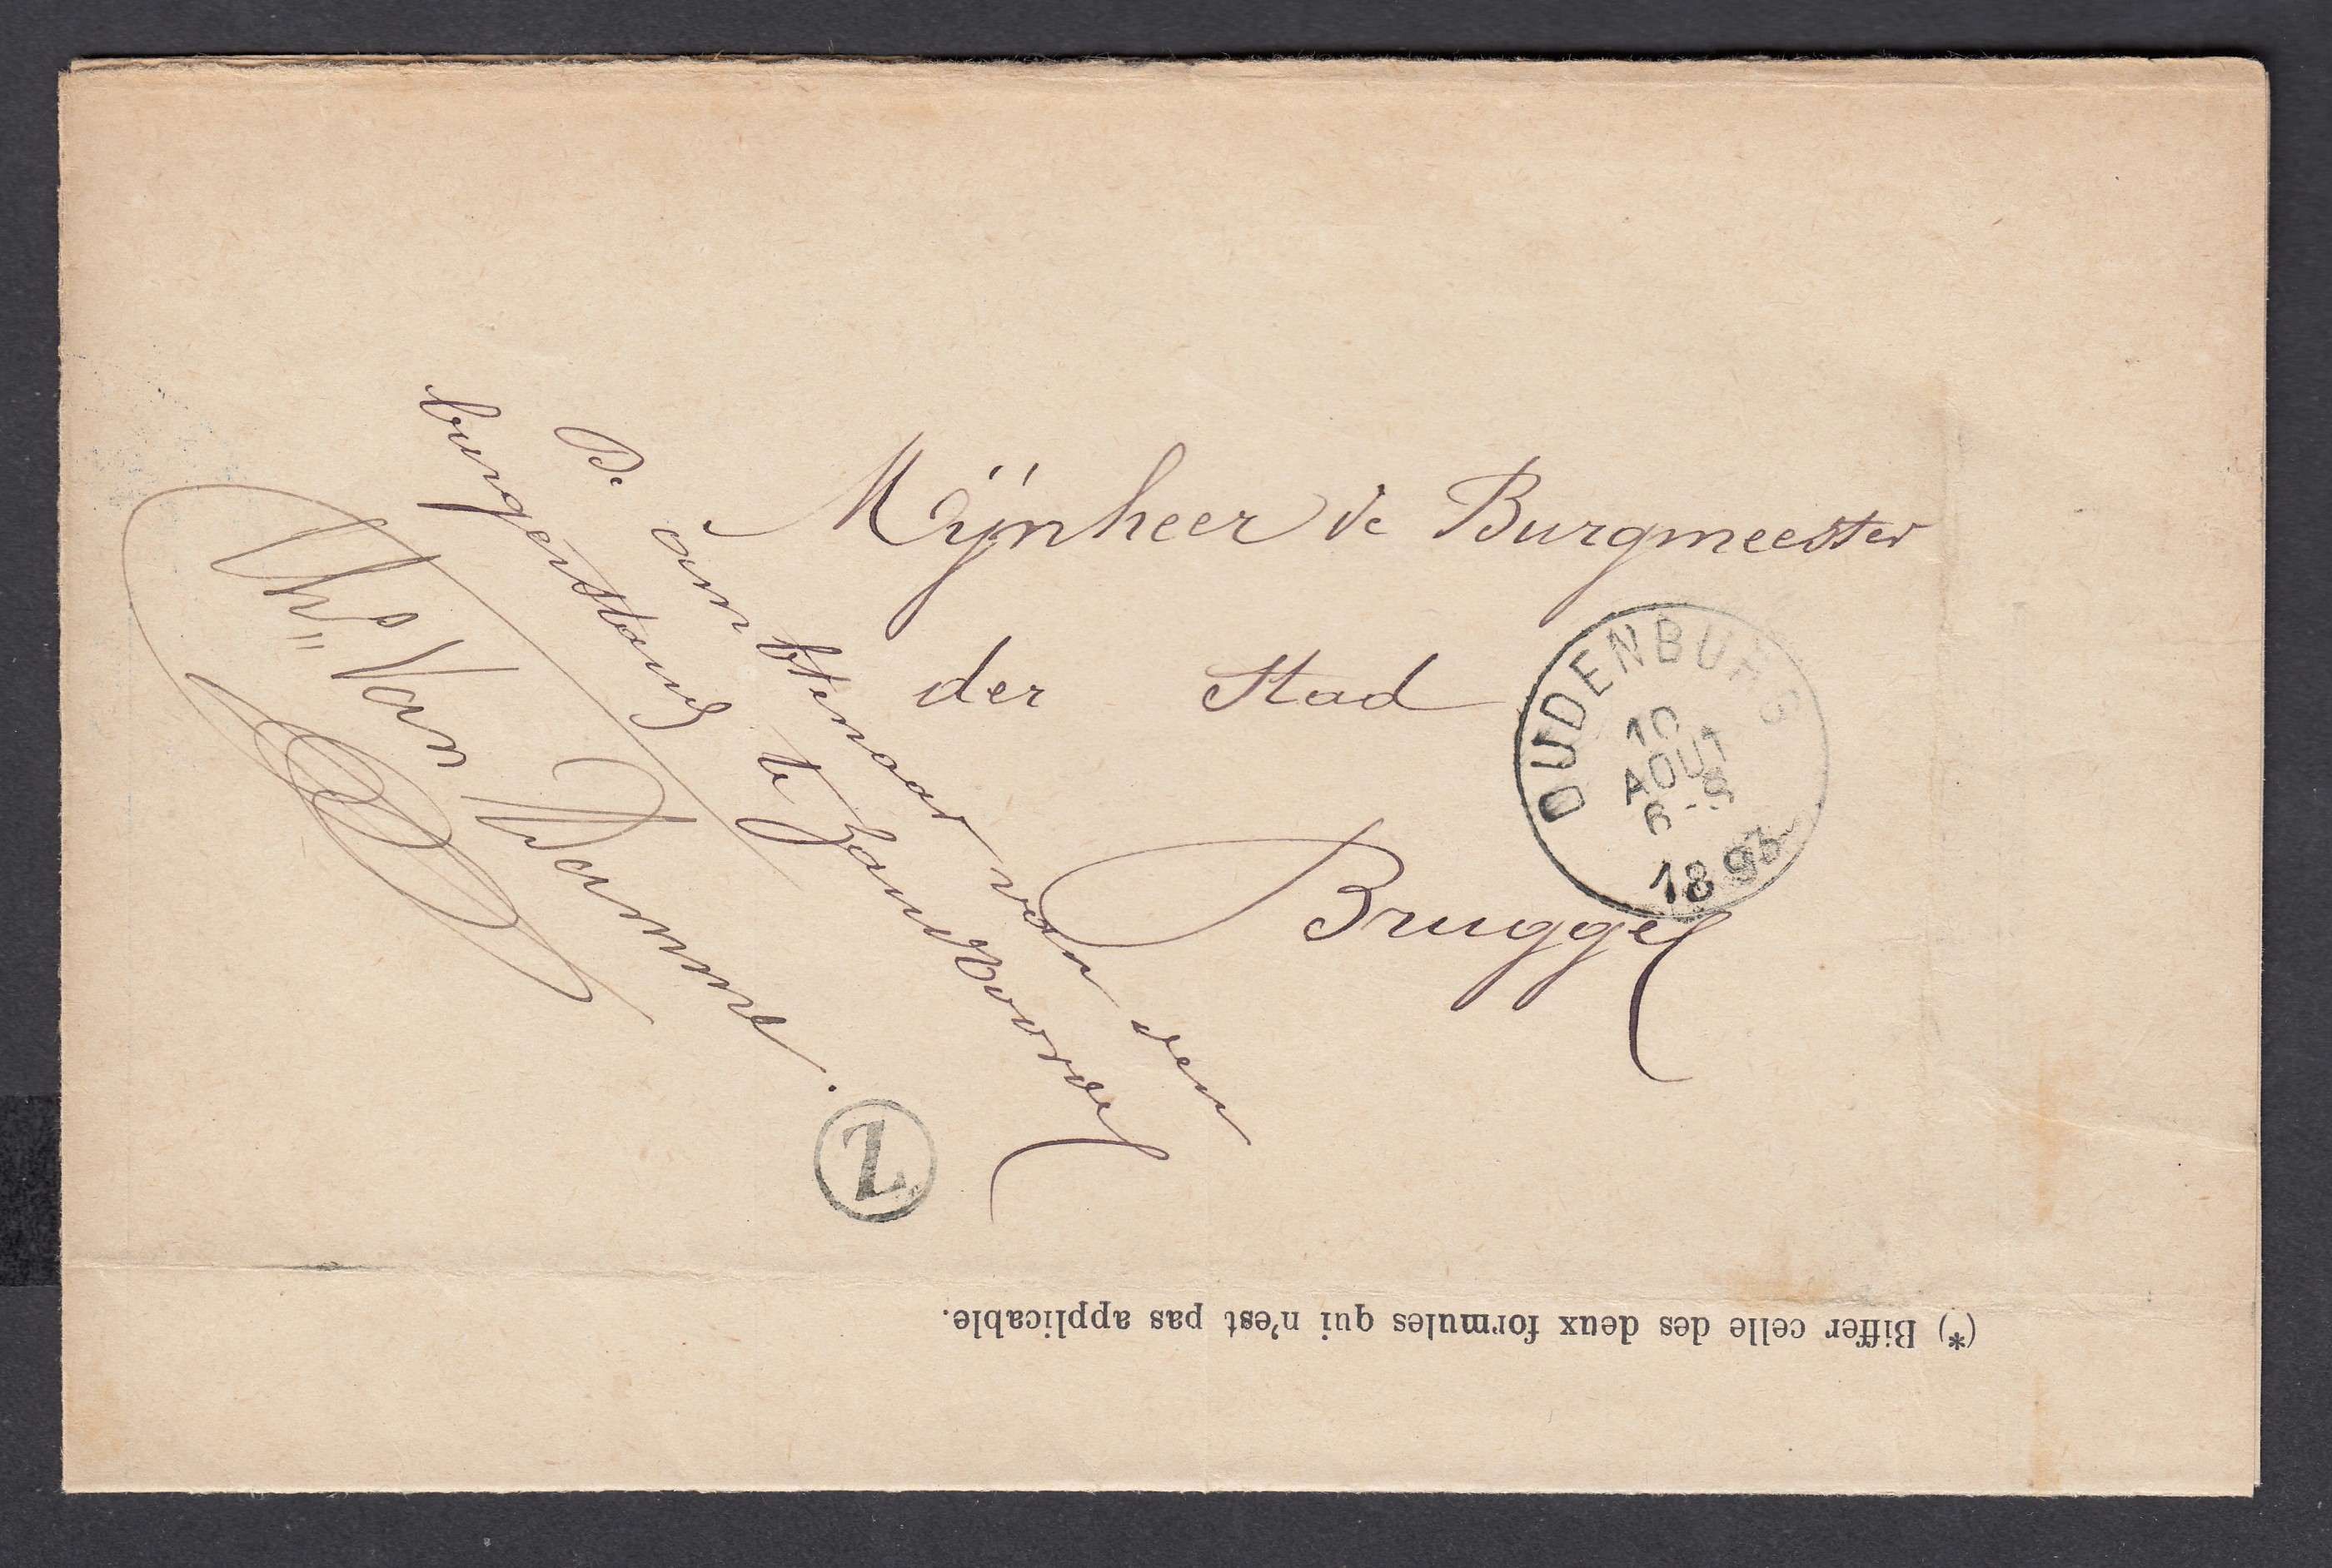 Mijnheer de Burgmeester
der Stad
Brugge
De ambtenaar van den
burgerstand te Zandvoorde
Ch. Van Damme.
OUDENBURG
10
AOUT
6-8
1893
Z
(*) Biffer celle des deux formules qui n'est pas applicable.